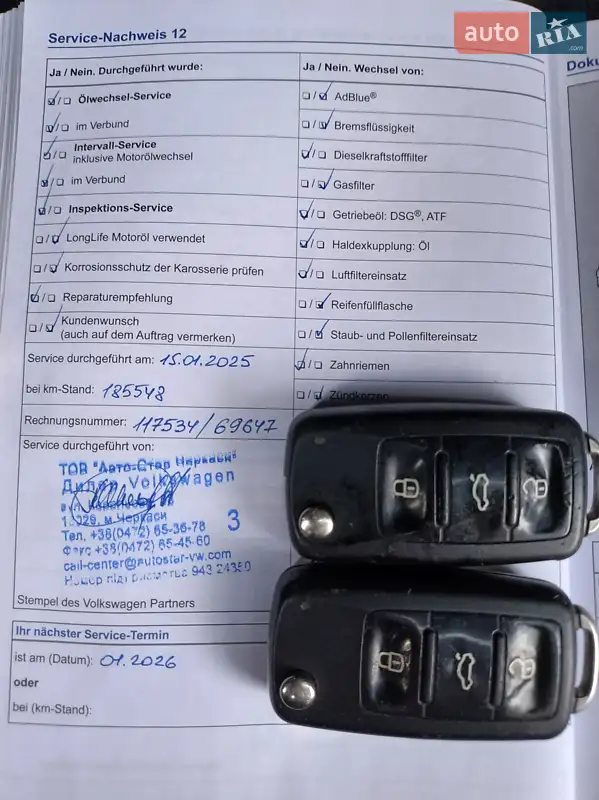 auto RIA .com
Service-Nachweis 12
Doku
Ja / Nein. Durchgeführt wurde:
Ölwechsel-Service
im Verbund
Intervall-Service
inklusive Motorölwechsel
im Verbund
Inspektions-Service
LongLife Motoröl verwendet
Korrosionsschutz der Karosserie prüfen
Reparaturempfehlung
Kundenwunsch
(auch auf dem Auftrag vermerken)
Service durchgeführt am: 15.01.2025
bei km-Stand: 185548
Rechnungsnummer: 117534/69647
Service durchgeführt von:
Ja / Nein. Wechsel von:
AdBlue®
Bremsflüssigkeit
Dieselkraftstofffilter
Gasfilter
Getriebeöl: DSG®, ATF
Haldexkupplung: Öl
Luftfiltereinsatz
Reifenfüllflasche
Staub- und Pollenfiltereinsatz
Zahnriemen
Zündkerzen
ТОВ "Авто-Стар Черкаси"
Дилер Volkswagen
м. Черкаси
Тел. +38(0472) 65-36-78
Факс +38(0472) 65-45-60
call-center@autostar-vw.com
3
Stempel des Volkswagen Partners
Ihr nächster Service-Termin
ist am (Datum): 01.2026
oder
bei (km-Stand):